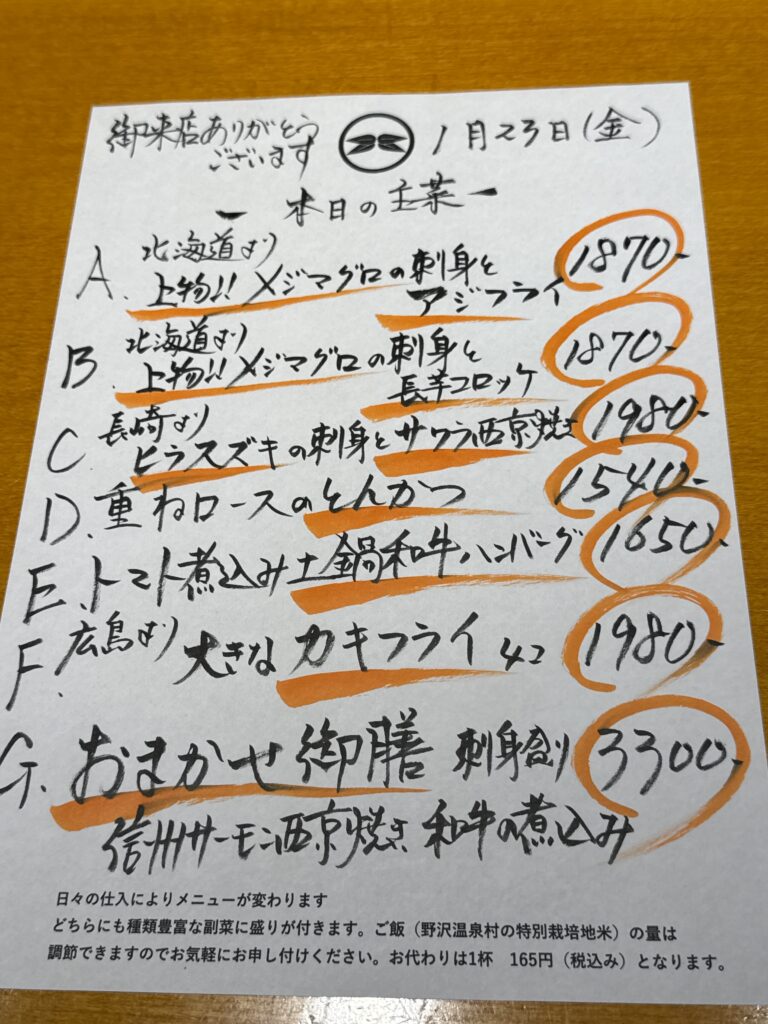 御来店ありがとう
ございます
1月23日(金)
ー 本日の主菜 ー
A. 北海道より
上物!! メジマグロの刺身と
アジフライ 1870-
B. 北海道より
上物!! メジマグロの刺身と
長芋コロッケ 1870-
C 長崎より
ヒラスズキの刺身とサワラ西京焼き 1980-
D. 重ねロースのとんかつ 1540-
E. トマト煮込み土鍋和牛ハンバーグ 1650-
F. 広島より 大きなカキフライ 4コ 1980-
G. おまかせ御膳 刺身盛り 3300-
信州サーモン西京焼き 和牛の煮込み
日々の仕入によりメニューが変わります
どちらにも種類豊富な副菜に盛りが付きます。ご飯（野沢温泉村の特別栽培地米）の量は
調節できますのでお気軽にお申し付けください。お代わりは1杯 165円（税込み）となります。